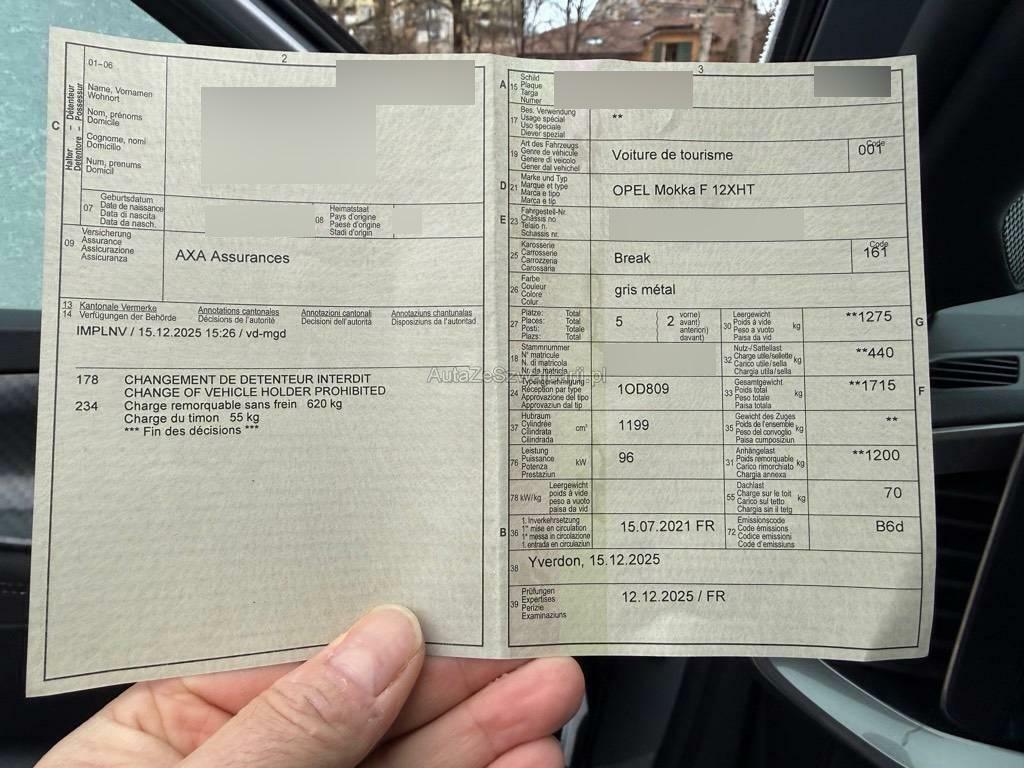 2
01-06
Name, Vornamen
Wohnort
Nom, prénoms
Domicile
Cognome, nomi
Domicilio
Num, prenums
Domicil
C
Halter – Détenteur
Detentore – Possessur
07
Geburtsdatum
Date de naissance
Data di nascita
Data da nasch.
08
Heimatstaat
Pays d'origine
Paese d'origine
Stadi d'origin
09
Versicherung
Assurance
Assicurazione
Assicuranza
AXA Assurances
13
14
Kantonale Vermerke
Verfügungen der Behörde
Annotations cantonales
Décisions de l'autorité
Annotazioni cantonali
Decisioni dell'autorità
Annotaziuns chantunalas
Disposiziuns da l'autoritad
IMPLNV / 15.12.2025 15:26 / vd-mgd
178 CHANGEMENT DE DETENTEUR INTERDIT
CHANGE OF VEHICLE HOLDER PROHIBITED
234 Charge remorquable sans frein 620 kg
Charge du timon 55 kg
*** Fin des décisions ***
3
A 15
Schild
Plaque
Targa
Numer
17
Bes. Verwendung
Usage spécial
Uso speciale
Diever spezial
**
19
Art des Fahrzeugs
Genre de véhicule
Genere di veicolo
Gener dal vehichel
Voiture de tourisme
Code
001
D 21
Marke und Typ
Marque et type
Marca e tipo
Marca e tip
OPEL Mokka F 12XHT
E 23
Fahrgestell-Nr.
Châssis no
Telaio n.
Schassis nr.
25
Karosserie
Carrosserie
Carrozzeria
Carossaria
Break
Code
161
26
Farbe
Couleur
Colore
Colur
gris métal
27
Plätze: Total
Places: Total
Posti: Totale
Plazs: Total
5
2
vorne)
avant)
anteriori)
davant)
30
Leergewicht
Poids à vide
Peso a vuoto
Paisa da vid
kg
**1275
G
18
Stammnummer
N° matricule
N. di matricola
Nr. da matricla
32
Nutz-/Sattellast
Charge utile/sellette
Carico utile/sella
Chargia utila/sella
kg
**440
24
Typengenehmigung
Réception par type
Approvazione del tipo
Approvaziun dal tip
1OD809
33
Gesamtgewicht
Poids total
Peso totale
Paisa totala
kg
**1715
F
37
Hubraum
Cylindrée
Cilindrata
Cilindrada
cm³
1199
35
Gewicht des Zuges
Poids de l'ensemble
Peso del convoglio
Paisa cumposiziun
kg
**
76
Leistung
Puissance
Potenza
Prestaziun
kW
96
31
Anhängelast
Poids remorquable
Carico rimorchiato
Chargia annexa
kg
**1200
78 kW/kg
Leergewicht
poids à vide
peso a vuoto
paisa da vid
55
Dachlast
Charge sur le toit
Carico sul tetto
Chargia sin il tetg
kg
70
B 36
1. Inverkehrsetzung
1re mise en circulation
1a messa in circolazione
1. entrada en circulaziun
15.07.2021 FR
72
Emissionscode
Code émissions
Codice emissioni
Code d'emissiuns
B6d
38
Yverdon, 15.12.2025
39
Prüfungen
Expertises
Perizie
Examinaziuns
12.12.2025 / FR
AutaZeSzwajcarii.pl